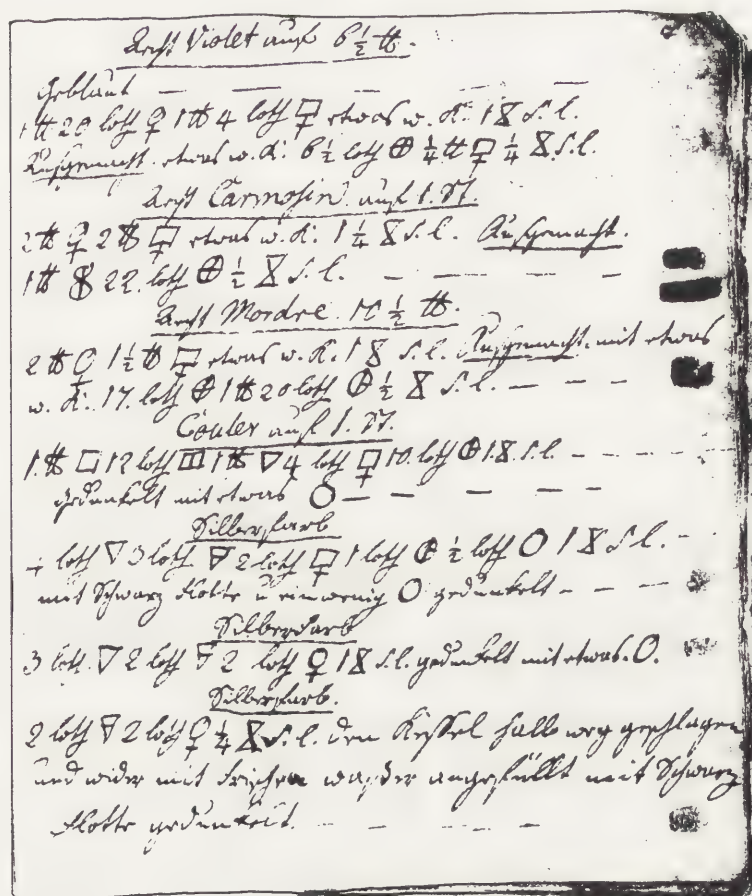 Aecht Violet auf 6 1/2 ℔.
Geblaut — — — — —
1 ℔ 20 loth ♀ 1 ℔ 4 loth 🜿 etwas w. K. 1 ⧖ S. l.
Aufgemacht. etwas w. K. 6 1/2 loth ⊕ 1/4 ℔ 🜿 1/4 ⧖. S. l.
Aecht Carmosin auf 1. St.
2 ℔ ♀ 2 ℔ 🜿 etwas w. K. 1 1/4 ⧖ S. l. Aufgemacht.
1 ℔ 22. loth ⊕ 1/2 ⧖ S. l. — — — —
Aecht Mordre 10 1/2 ℔.
2 ℔ ♀ 1 1/2 ℔ 🜿 etwas w. K. 1 ⧖ S. l. Aufgemacht. mit etwas
w. K. 17. loth ⊕ 1 ℔ 20 loth ⊕ 1/2 ⧖ S. l. — — —
Couler auf 1. St.
1. ℔ □ 12 loth 1 ℔ ▽ 4 loth 🜿 10. loth ⊕ 1 ⧖. S. l. — — — —
gedunkelt mit etwas O — — — — —
Silberfarb
loth ▽ 3 loth 🜃 2 loth 🜿 1 loth ⊕ 1/2 loth O 1 ⧖ S. l. —
mit Schwarz Flotte u ein wenig O gedunkelt — — —
Silberfarb
3 loth. ▽ 2 loth 🜃 2 loth ♀ 1 ⧖ S. l. gedunkelt mit etwas. O.
Silberfarb.
2 loth 🜃 2 loth ♀ 1/4 ⧖ S. l. den Kessel halb weg geschlagen
und wider mit frischen waßer angefüllt mit Schwarz
Flotte gedunkelt. — — — —